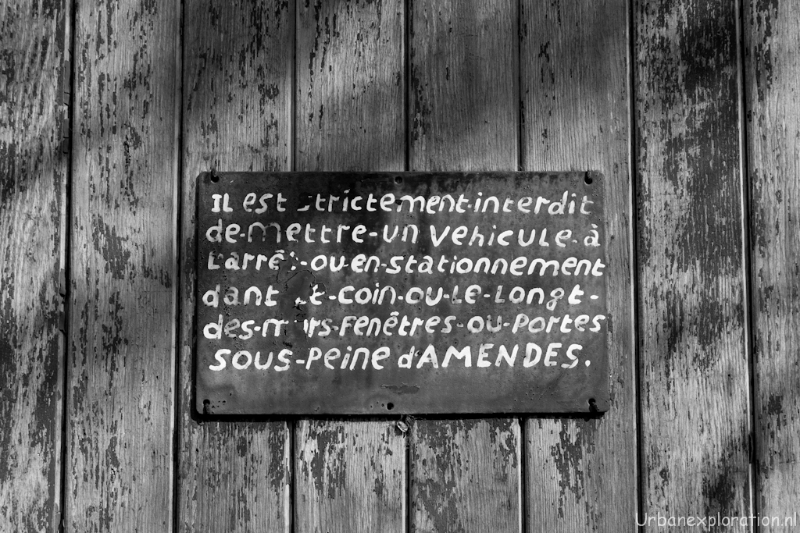 IL est strictement-interdit
de-mettre-un vehicule-à
L'arrêt-ou-en-stationnement
dant
-coin-ou-Le-Longt-
des-murs-Fenêtres-ou-Portes
SOUS-Peine d'AMENDES.
Urbanexploration.nl